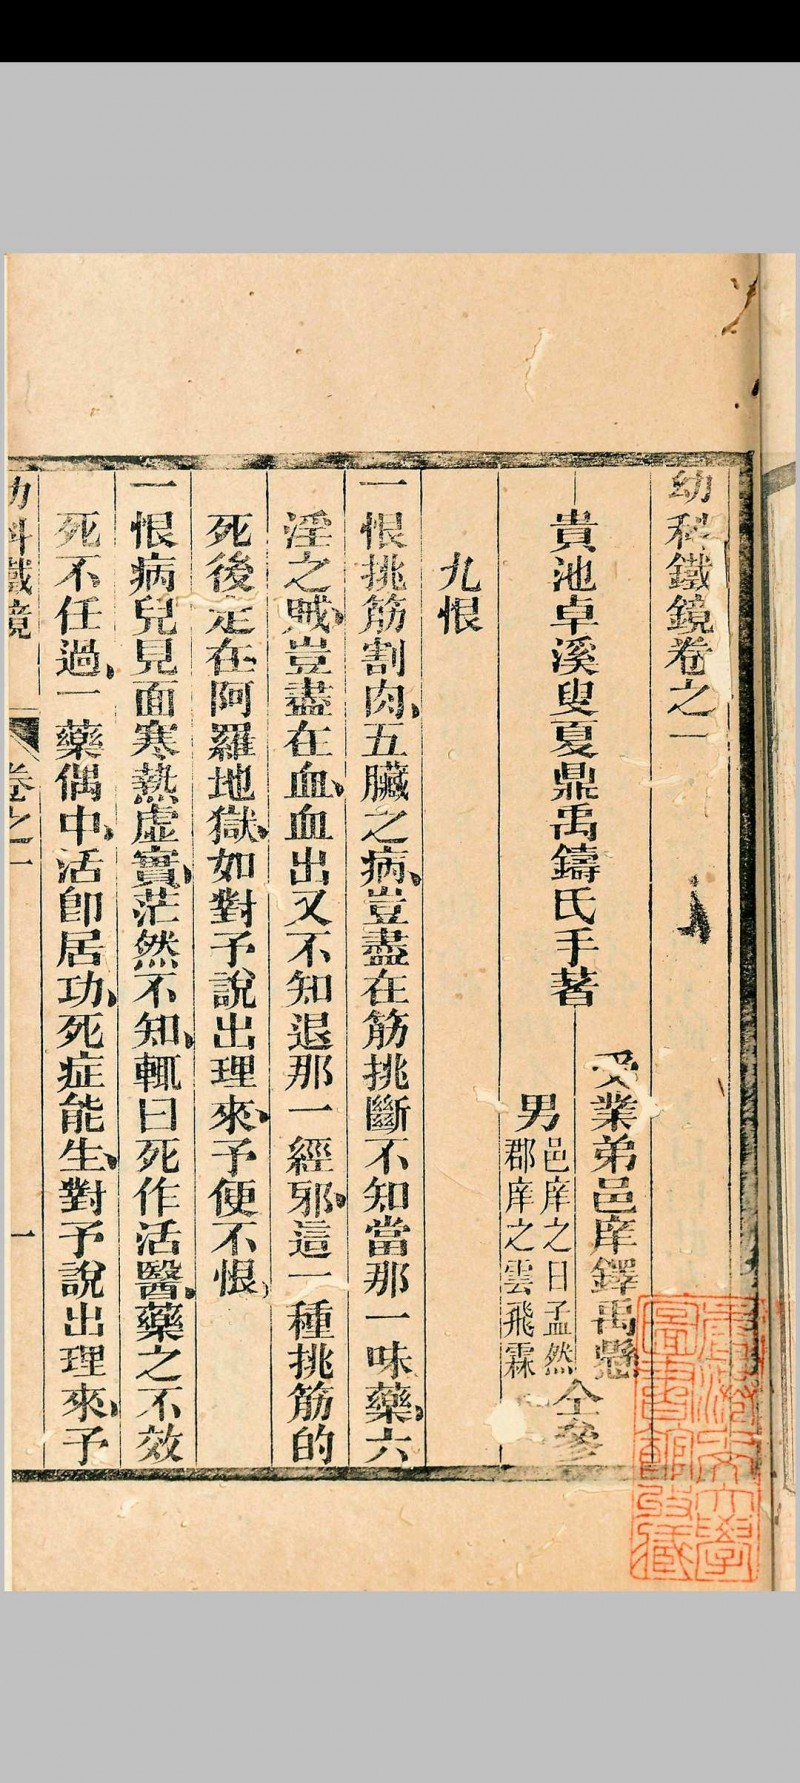 幼科鐵鏡卷之一
貴池卓溪叟夏鼎禹鑄氏手著
受業弟邑庠鐸禹懸
男
邑庠之日孟然
郡庠之雲飛霖
仝參
九恨
一恨挑筋割肉、五臟之病、豈盡在筋挑斷不知當那一味藥、六
淫之賊、豈盡在血、血出又不知退那一經邪、這一種挑筋的
死後定在阿羅地獄、如對予說出理來、予便不恨、
一恨病兒見面寒熱虛實、茫然不知、輒曰死作活醫、藥之不效
死不任過、一藥偶中、活卽居功、死症能生、對予說出理來、予
幼科鐵鏡
卷之一
一
圖書館收藏